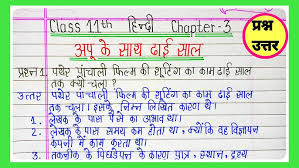 Class 11th हिन्दी Chapter-3
प्रश्न
उत्तर
अपू के साथ ढाई साल
प्रश्न 1. पथेर पांचाली फिल्म की शूटिंग का काम ढाई साल
तक क्यों चला ?
उत्तर पथेर पांचाली फिल्म की शूटिंग का काम ढाई साल
तक चला । इसके निम्न लिखित कारण थे।
1. लेखक के पास पैसे का अभाव था।
2. लेखक के पास समय कम होता था, क्योंकि वह विज्ञापन
कंपनी में काम करता था।
3. तकनीक के पिछड़ेपन के कारण पात्र, स्थान, दृश्य